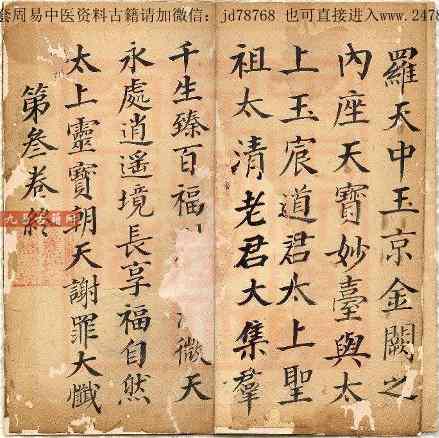 套周易中医资料古籍请加微信：jd78768 也可直接进入www.2478
羅天中玉京金闕之
內座天寶妙臺與太
上玉宸道君太上聖
祖太清老君大集羣
千生臻百福 微天
永處逍遙境長享福自然
太上靈寶朝天謝罪大懺
第叁卷終